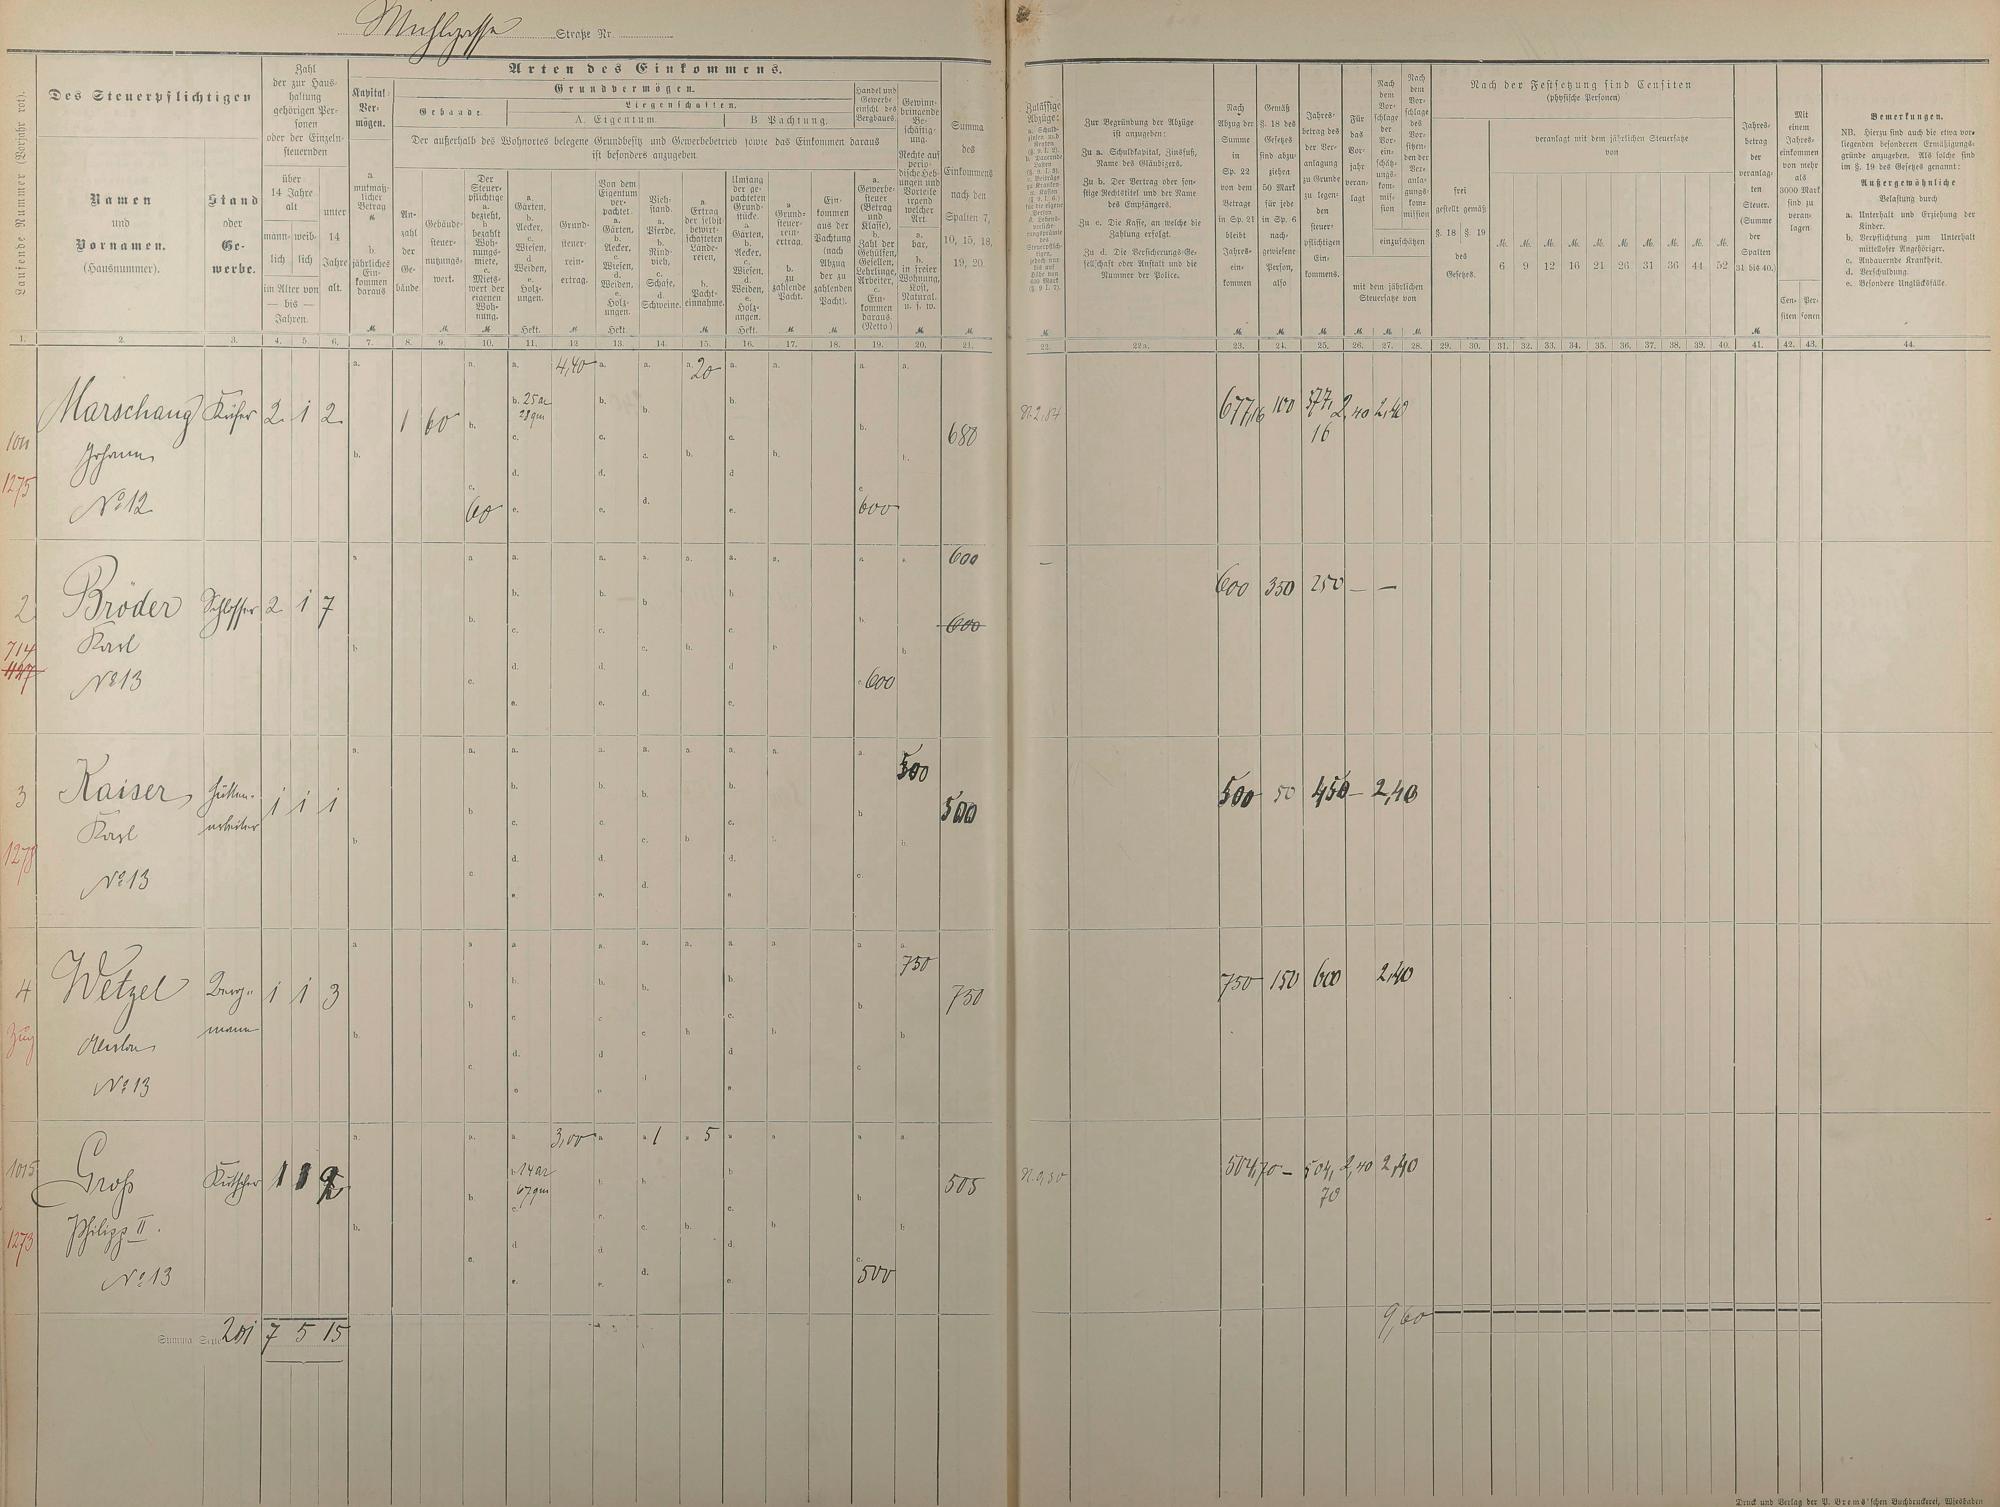 Mühlgasse Straße Nr.
Laufende Nummer (Vorjahr rot).
Des Steuerpflichtigen
Namen
und
Vornamen.
(Hausnummer).
Stand
oder
Ge-
werbe.
Zahl
der zur Haus-
haltung
gehörigen Per-
sonen
oder der Einzeln-
steuernden
über
14 Jahre
alt
männ-
lich
weib-
lich
unter
14
Jahre
alt.
im Alter von
— bis —
Jahren.
Arten des Einkommens.
Kapital-
Ver-
mögen.
a.
mutmaß-
licher
Betrag
M
b.
jährliches
Ein-
kommen
daraus
M
Grundvermögen.
Gebäude.
Liegenschaften.
A. Eigentum.
B. Pachtung.
Der außerhalb des Wohnortes belegene Grundbesitz und Gewerbebetrieb sowie das Einkommen daraus
ist besonders anzugeben.
An-
zahl
der
Ge-
bäude
Gebäude-
steuer-
nutzungs-
wert.
M
Der
Steuer-
pflichtige
a.
bezieht,
b.
bezahlt
Woh-
nungs-
miete,
c.
Miets-
wert der
eigenen
Woh-
nung.
M
a.
Gärten,
b.
Aecker,
c.
Wiesen,
d.
Weiden,
e.
Holz-
ungen.
Hekt.
Grund-
steuer-
rein-
ertrag.
M
Von dem
Eigentum
ver-
pachtet.
a.
Gärten,
b.
Aecker,
c.
Wiesen,
d.
Weiden,
e.
Holz-
ungen.
Hekt.
Vieh-
stand.
a.
Pferde,
b.
Rind-
vieh,
c.
Schafe,
d.
Schweine.
a.
Ertrag
der selbst
bewirt-
schafteten
Lände-
reien,
b.
Pacht-
einnahme.
M
Umfang
der ge-
pachteten
Grund-
stücke.
a.
Gärten,
b.
Aecker,
c.
Wiesen,
d.
Weiden,
e.
Holz-
ungen.
Hekt.
a.
Grund-
steuer-
rein-
ertrag.
b.
zu
zahlende
Pacht.
M
Ein-
kommen
aus der
Pachtung
(nach
Abzug
der zu
zahlenden
Pacht).
M
Handel und
Gewerbe
einschl. des
Bergbaues.
a.
Gewerbe-
steuer
(Betrag
und
Klasse),
b.
Zahl der
Gehülfen,
Gesellen,
Lehrlinge,
Arbeiter,
c.
Ein-
kommen
daraus.
(Netto)
Gewinn-
bringende
Be-
schäftig-
ung.
Rechte auf
perio-
dische Heb-
ungen und
Vorteile
irgend
welcher
Art.
a.
bar,
b.
in freier
Wohnung,
Kost,
Natural.
u. s. w.
M
Summa
des
Einkommens
nach den
Spalten 7,
10, 15, 18,
19, 20.
M
Zulässige
Abzüge:
Zur Begründung der Abzüge
ist anzugeben:
Zu a. Schuldkapital, Zinsfuß,
Name des Gläubigers.
Zu b. Der Vertrag oder son-
stige Rechtstitel und der Name
des Empfängers.
Zu c. Die Kasse, an welche die
Zahlung erfolgt.
Zu d. Die Versicherungs-Ge-
sellschaft oder Anstalt und die
Nummer der Police.
Nach
Abzug der
Summe
in
Sp. 22
von dem
Betrage
in Sp. 21
bleibt
Jahres-
ein-
kommen
M
Gemäß
§. 18 des
Gesetzes
sind abzu-
ziehen
50 Mark
für jede
in Sp. 6
nach-
gewiesene
Person,
also
M
Jahres-
betrag des
der Ver-
anlagung
zu Grunde
zu legen-
den
steuer-
pflichtigen
Ein-
kommens.
M
Für
das
Vor-
jahr
veran-
lagt
M
Nach
dem
Vor-
schlage
der
Vor-
ein-
schätz-
ungs-
kom-
mis-
sion
Nach
dem
Vor-
schlage
des
Vor-
sitzen-
den der
Ver-
anla-
gungs-
kom-
mission
einzuschätzen
mit dem jährlichen
Steuersatze von
M M
Nach der Festsetzung sind Censiten
(physische Personen)
frei
gestellt gemäß
§. 18 §. 19
des
Gesetzes.
veranlagt mit dem jährlichen Steuersatze
von
M. M. M. M. M. M. M. M. M. M.
6 9 12 16 21 26 31 36 44 52
Jahres-
betrag
der
veranlag-
ten
Steuer.
(Summe
der
Spalten
31 bis 40.)
M
Mit
einem
Jahres-
einkommen
von mehr
als
3000 Mark
sind zu
veran-
lagen
Cen-
siten
Per-
sonen
Bemerkungen.
NB. Hierzu sind auch die etwa vor-
liegenden besonderen Ermäßigungs-
gründe anzugeben. Als solche sind
im §. 19 des Gesetzes genannt:
Außergewöhnliche
Belastung durch
a. Unterhalt und Erziehung der
Kinder.
b. Verpflichtung zum Unterhalt
mittelloser Angehöriger.
c. Andauernde Krankheit.
d. Verschuldung.
e. Besondere Unglücksfälle.
1. 2. 3. 4. 5. 6. 7. 8. 9. 10. 11. 12 13. 14. 15. 16. 17. 18. 19. 20. 21.
22. 22a. 23. 24. 25. 26. 27. 28. 29. 30. 31. 32. 33. 34. 35. 36. 37. 38. 39. 40. 41. 42. 43. 44.
Marschang Küfer 2 1 2 1 60 b. 25 ar 4,40 20 688
28 qm
Johann
1275
No 12 c. 60 c. 600
N. 2,84 677,16 100 577, 2,40 2,40
16
2 Bröder Schlosser 2 1 7 600
Karl 600
714
No 13 c. 600
— 600 350 250 — —
3 Kaiser Hütten- 1 1 1 500 500
Karl arbeiter
1278
No 13
500 50 450 — 2,40
4 Wetzel Berg- 1 1 3 750 750
mann
Zug
No 13
750 150 600 2,40
1015 Groß Kutscher 1 1 2 b. 14 ar 3,00 1 5 505
67 qm
Philipp II.
1273
No 13 c. 500
504,70 — 504, 2,40 2,40
70
Summa Seite 201 7 5 15
9,60
Druck und Verlag der P. Brems'schen Buchdruckerei, Wiesbaden